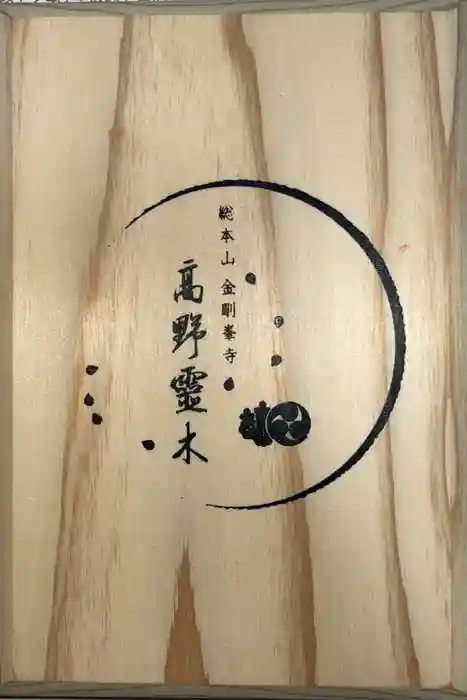 総本山 金剛峯寺
高野靈木